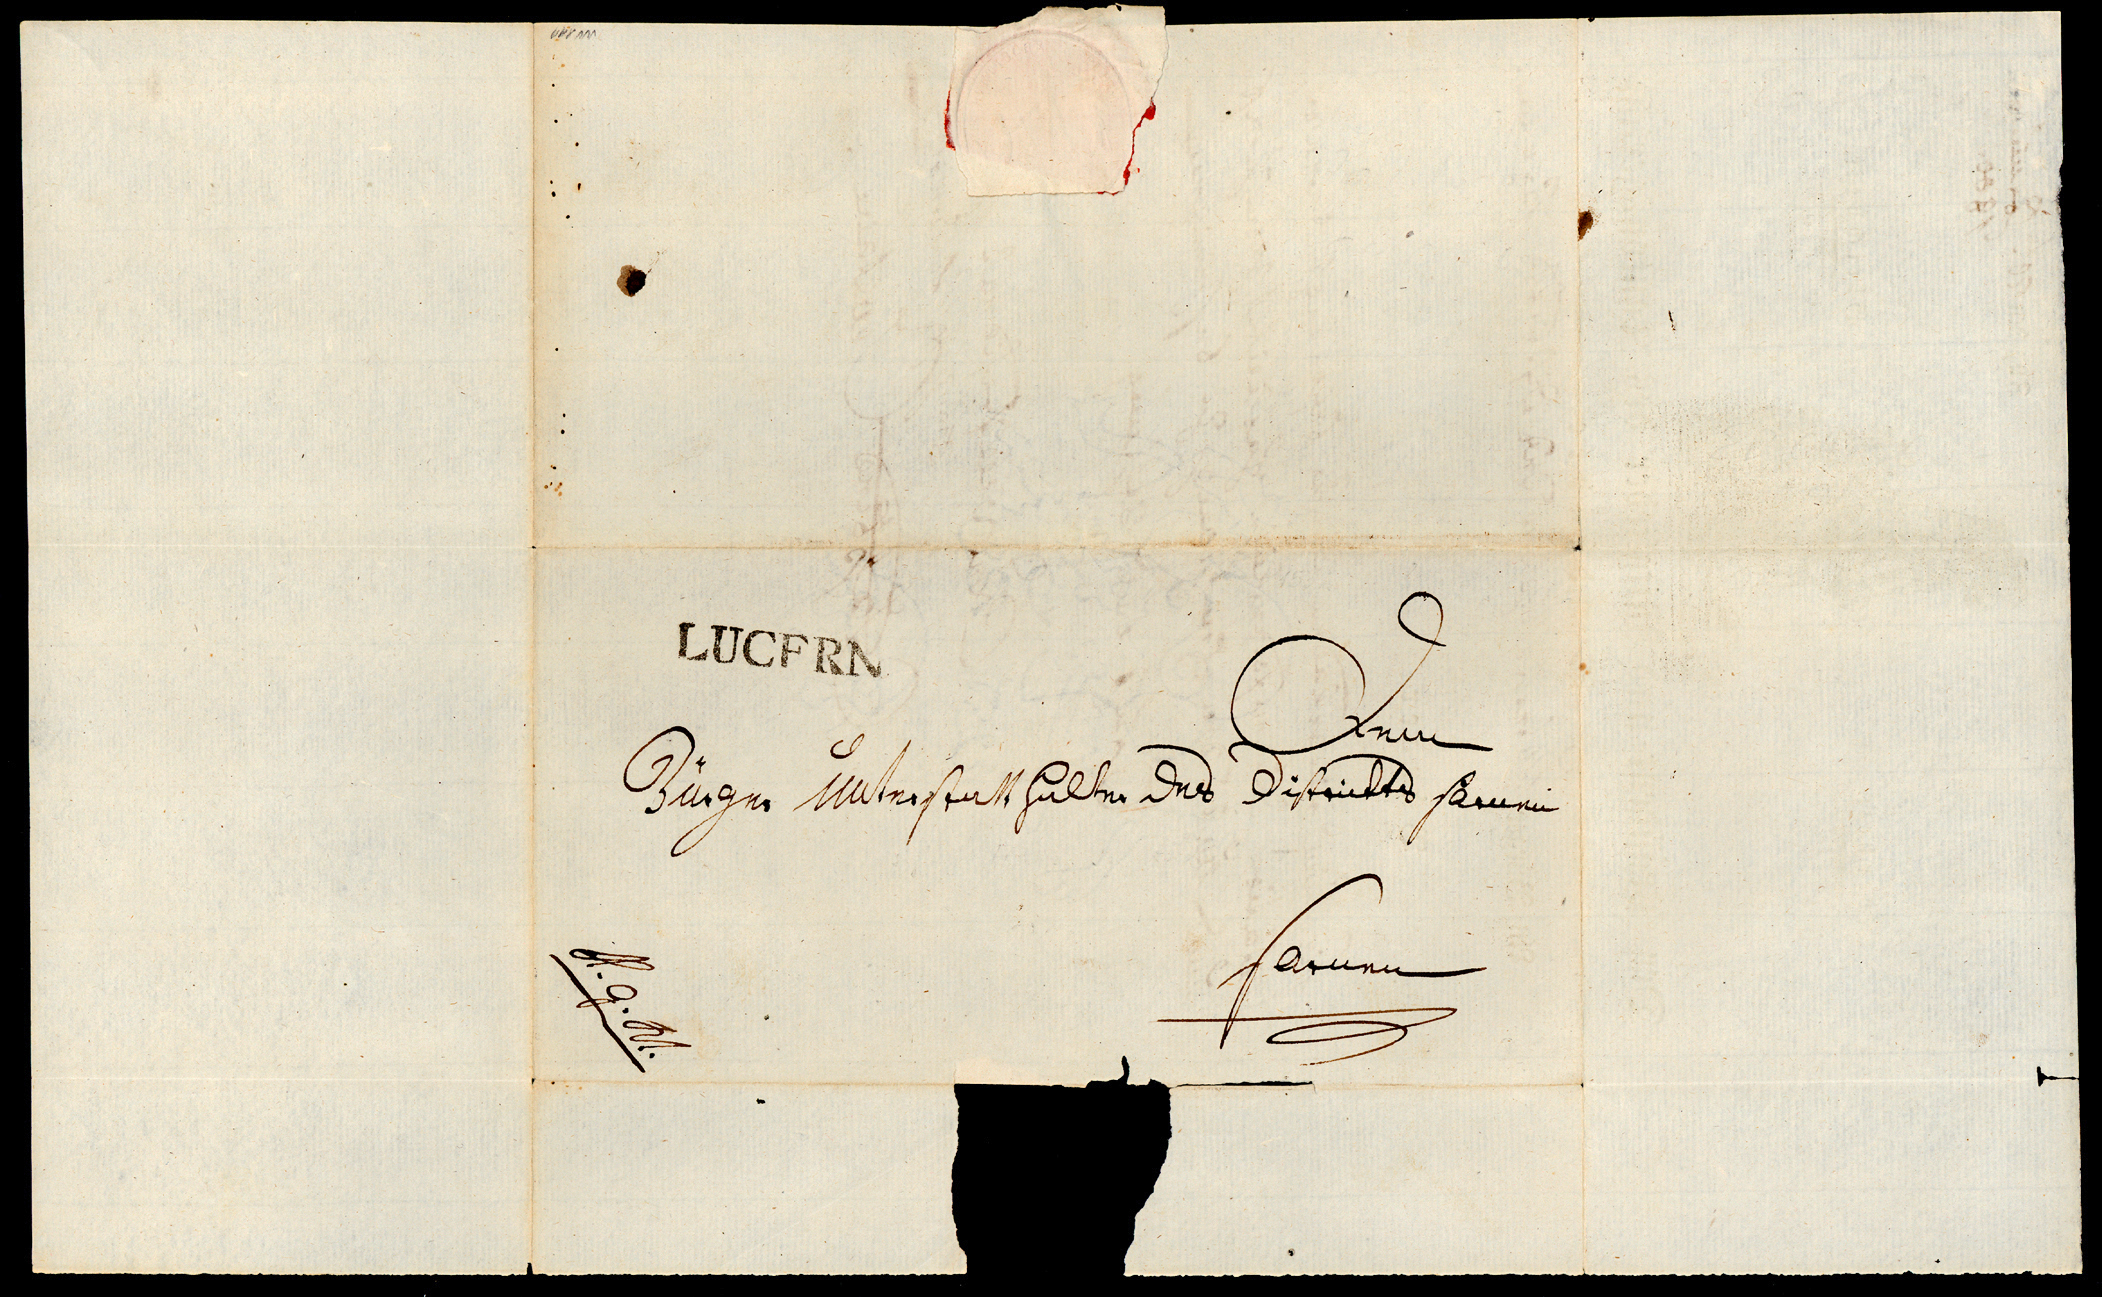 LUCERN
Dem
Bürger Unterstatthalter des Districkts Sarnen
Sarnen